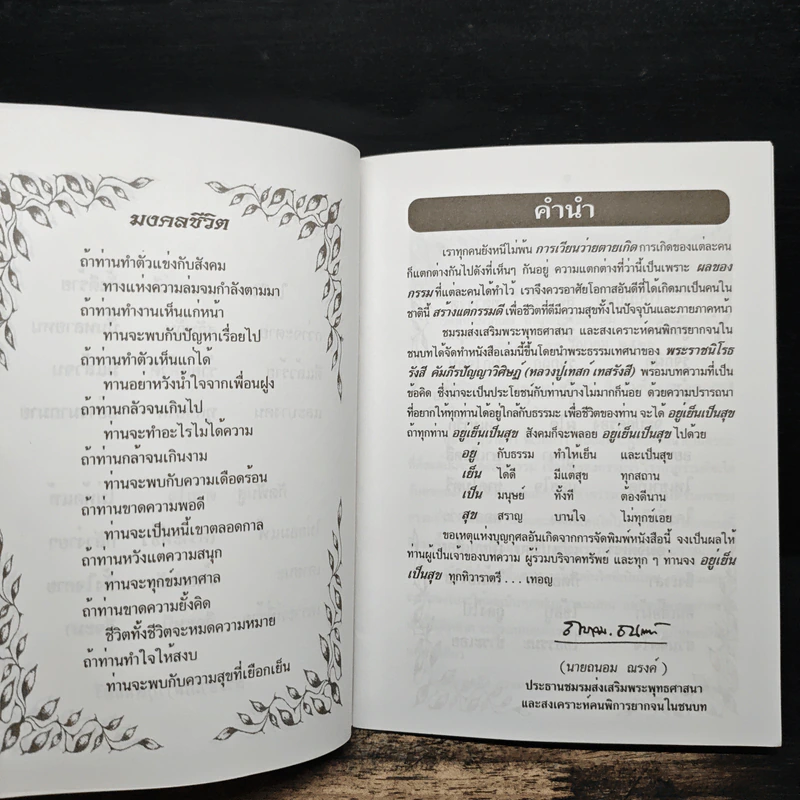 มงคลชีวิต
ถ้าท่านทำตัวแข่งกับสังคม
ทางแห่งความล่มจมกำลังตามมา
ถ้าท่านทำงานเห็นแก่หน้า
ท่านจะพบกับปัญหาเรื่อยไป
ถ้าท่านทำตัวเห็นแก่ได้
ท่านอย่าหวังน้ำใจจากเพื่อนฝูง
ถ้าท่านกลัวจนเกินไป
ท่านจะทำอะไรไม่ได้ความ
ถ้าท่านกล้าจนเกินงาม
ท่านจะพบกับความเดือดร้อน
ถ้าท่านขาดความพอดี
ท่านจะเป็นหนี้เขาตลอดกาล
ถ้าท่านหวังแต่ความสนุก
ท่านจะทุกข์มหาศาล
ถ้าท่านขาดความยั้งคิด
ชีวิตทั้งชีวิตจะหมดความหมาย
ถ้าท่านทำใจให้สงบ
ท่านจะพบกับความสุขที่เยือกเย็น
คำนำ
เราทุกคนยังหนีไม่พ้น การเวียนว่ายตายเกิด การเกิดของแต่ละคน
ก็แตกต่างกันไปดังที่เห็นๆ กันอยู่ ความแตกต่างที่ว่านี้เป็นเพราะ ผลของ
กรรม ที่แต่ละคนได้ทำไว้ เราจึงควรอาศัยโอกาสอันดีที่ได้เกิดมาเป็นคนใน
ชาตินี้ สร้างแต่กรรมดี เพื่อชีวิตที่ดีมีความสุขทั้งในปัจจุบันและภายภาคหน้า
ชมรมส่งเสริมพระพุทธศาสนา และสงเคราะห์คนพิการยากจนใน
ชนบทได้จัดทำหนังสือเล่มนี้ขึ้นโดยนำพระธรรมเทศนาของ พระราชนิโรธ
รังสี คัมภีรปัญญาวิศิษฏ์ (หลวงปู่เทสก์ เทสรังสี) พร้อมบทความที่เป็น
ข้อคิด ซึ่งน่าจะเป็นประโยชน์กับท่านบ้างไม่มากก็น้อย ด้วยความปรารถนา
ที่อยากให้ทุกท่านได้อยู่ใกล้กับธรรมะ เพื่อชีวิตของท่าน จะได้ อยู่เย็นเป็นสุข
ถ้าทุกท่าน อยู่เย็นเป็นสุข สังคมก็จะพลอย อยู่เย็นเป็นสุข ไปด้วย
อยู่ กับธรรม ทำให้เย็น และเป็นสุข
เย็น ได้ดี มีแต่สุข ทุกสถาน
เป็น มนุษย์ ทั้งที ต้องดีนาน
สุข สราญ บานใจ ไม่ทุกข์เอย
ขอเหตุแห่งบุญกุศลอันเกิดจากการจัดพิมพ์หนังสือนี้ จงเป็นผลให้
ท่านผู้เป็นเจ้าของบทความ ผู้ร่วมบริจาคทรัพย์ และทุก ๆ ท่านจง อยู่เย็น
เป็นสุข ทุกทิวาราตรี . . . เทอญ
(นายถนอม ณรงค์)
ประธานชมรมส่งเสริมพระพุทธศาสนา
และสงเคราะห์คนพิการยากจนในชนบท